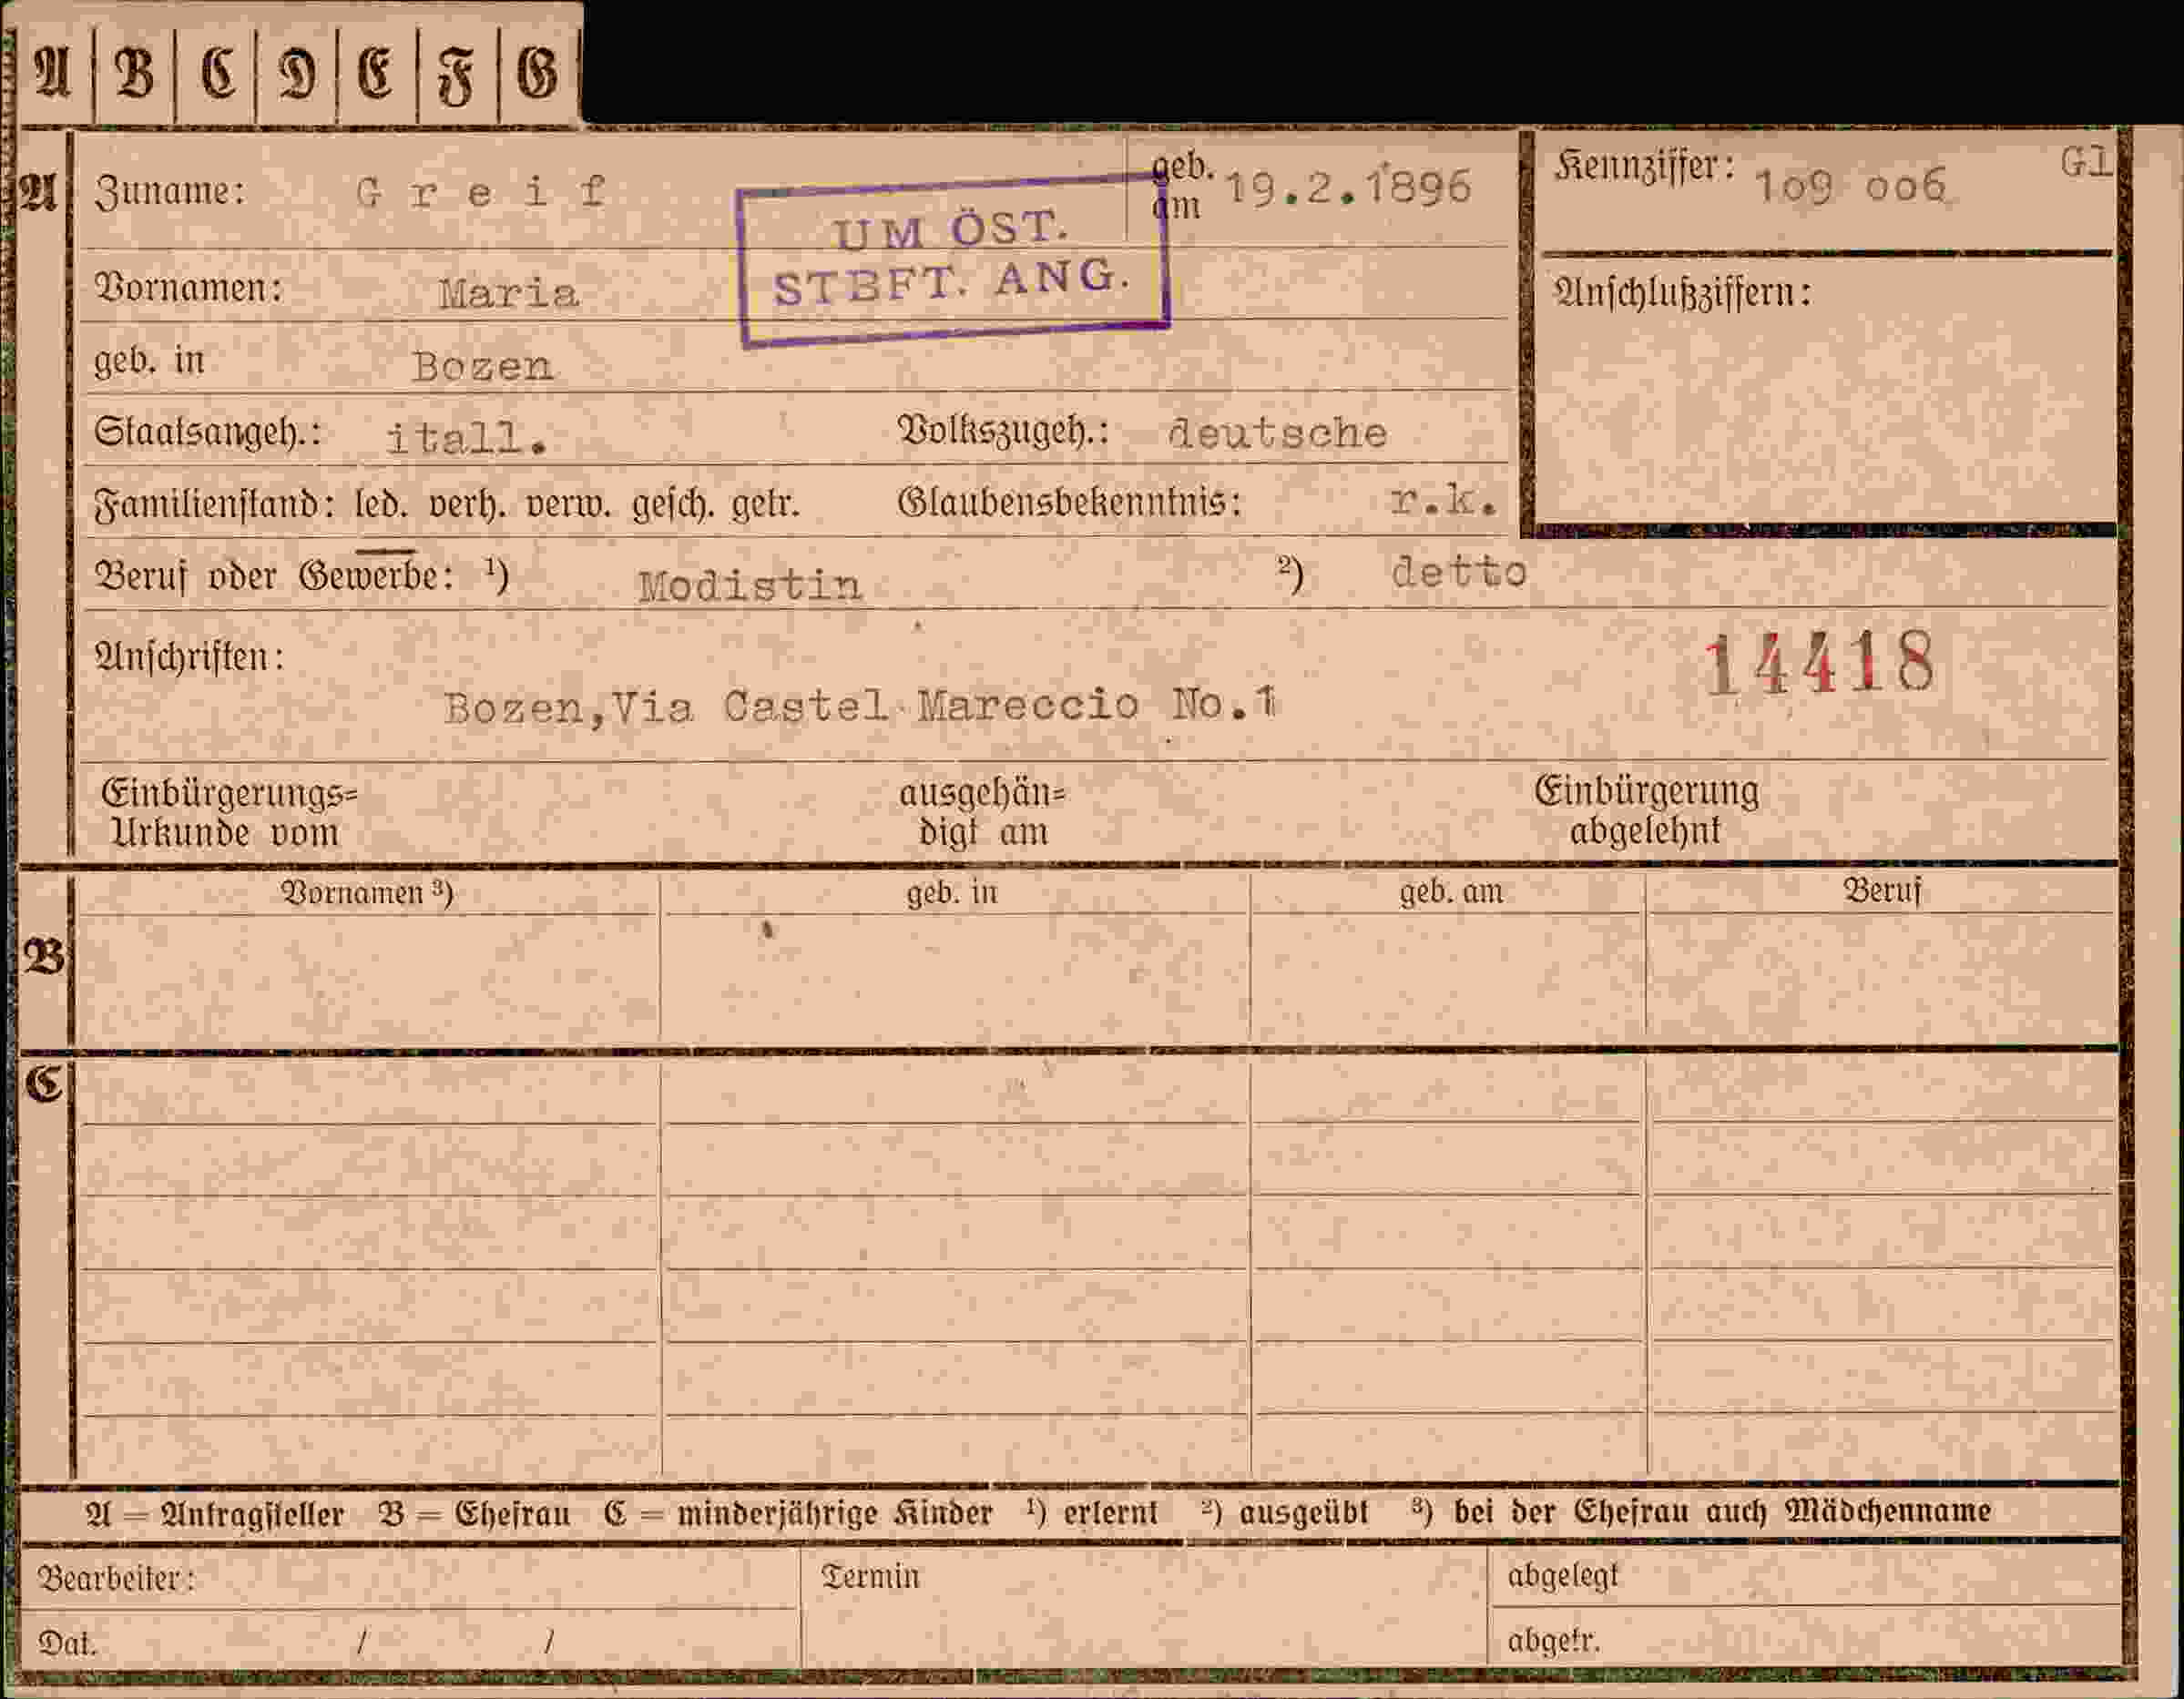 A B C D E F G
A Zuname: Greif geb. am 19.2.1896 Kennziffer: 1o9 oo6 Gl
UM ÖST.
STBFT. ANG.
Vornamen: Maria Anschlußziffern:
geb. in Bozen
Staatsangeh.: itall. Volkszugeh.: deutsche
Familienstand: led. verh. verw. gesch. getr. Glaubensbekenntnis: r.k.
Beruf oder Gewerbe: ¹) Modistin ²) detto
Anschriften: 14418
Bozen,Via Castel Mareccio No.1
Einbürgerungs= ausgehän= Einbürgerung
Urkunde vom digt am abgelehnt
Vornamen ³) geb. in geb. am Beruf
B
C
A = Antragsteller B = Ehefrau C = minderjährige Kinder ¹) erlernt ²) ausgeübt ³) bei der Ehefrau auch Mädchenname
Bearbeiter: Termin abgelegt
Dat. / / abgetr.